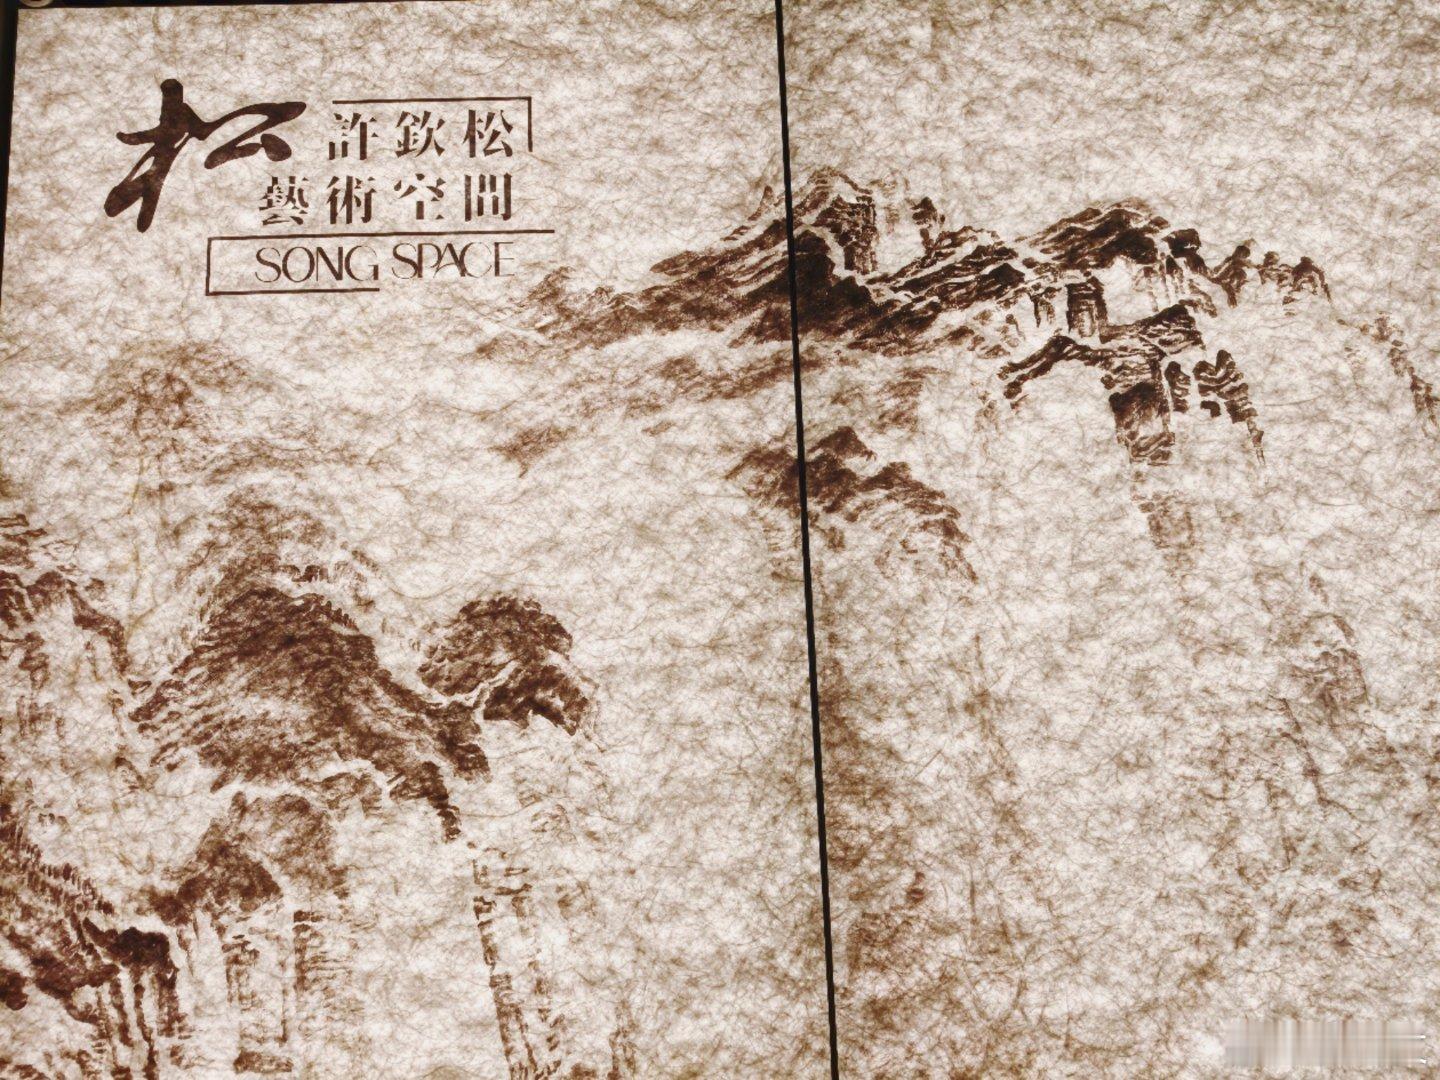 松
許欽松
藝術空間
SONG SPACE